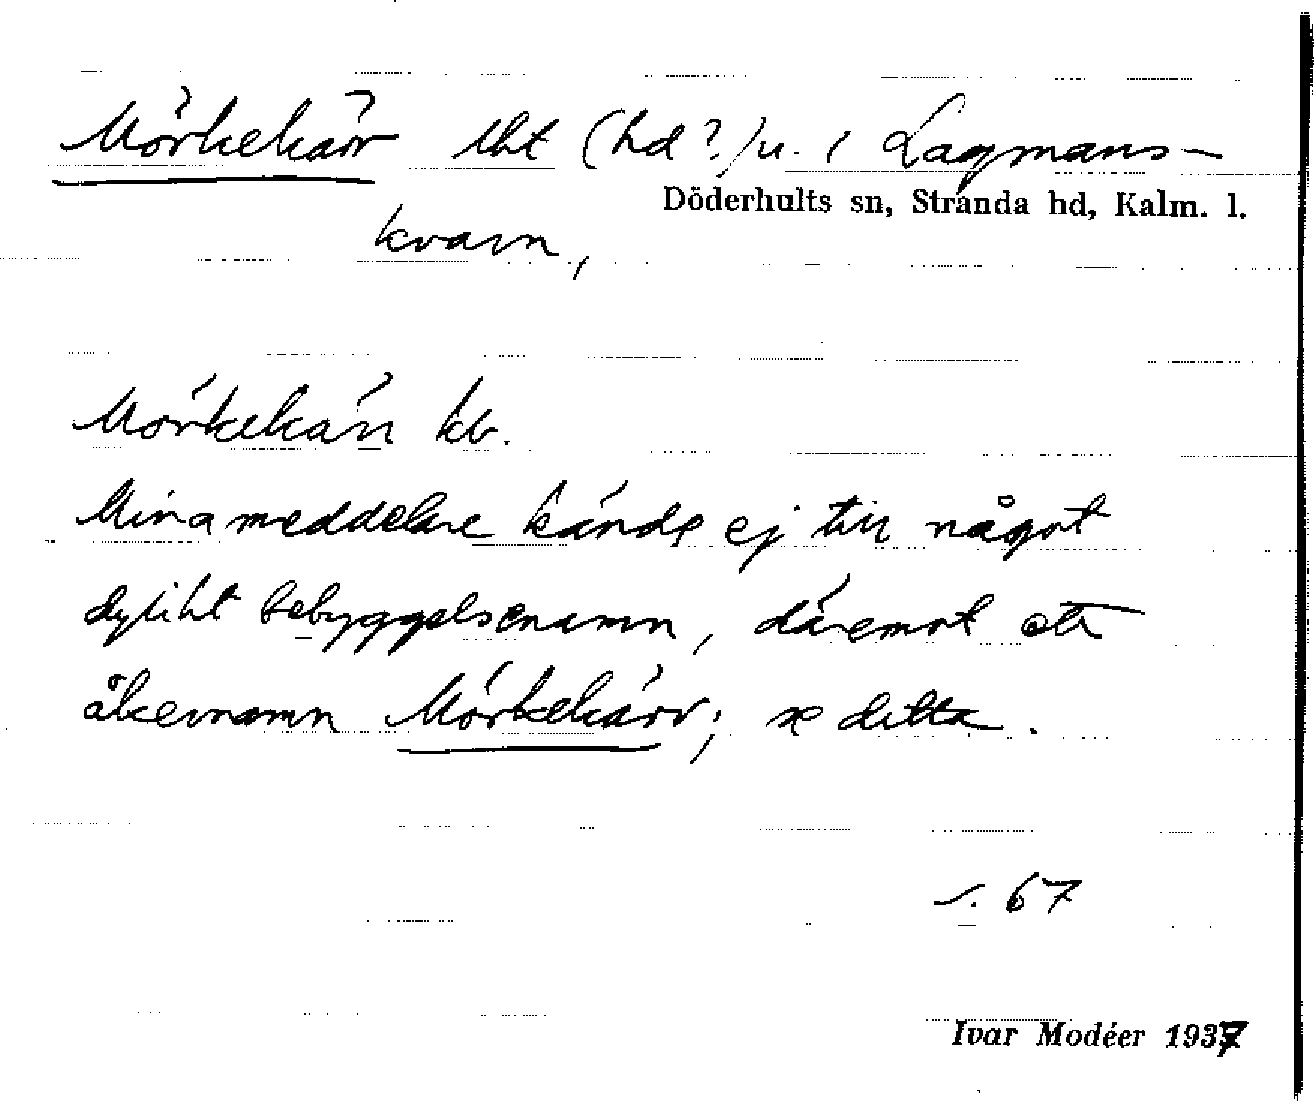 Mörkekärr lht (hd?) u. i Lagmans-
Döderhults sn, Stranda hd, Kalm. l.
kvarn,
Mörkekärr kb.
Mina meddelare kände ej till något
dylikt bebyggelsenamn, däremot ett
åkernamn Mörkekärr; se detta.
s. 67
Ivar Modéer 1937